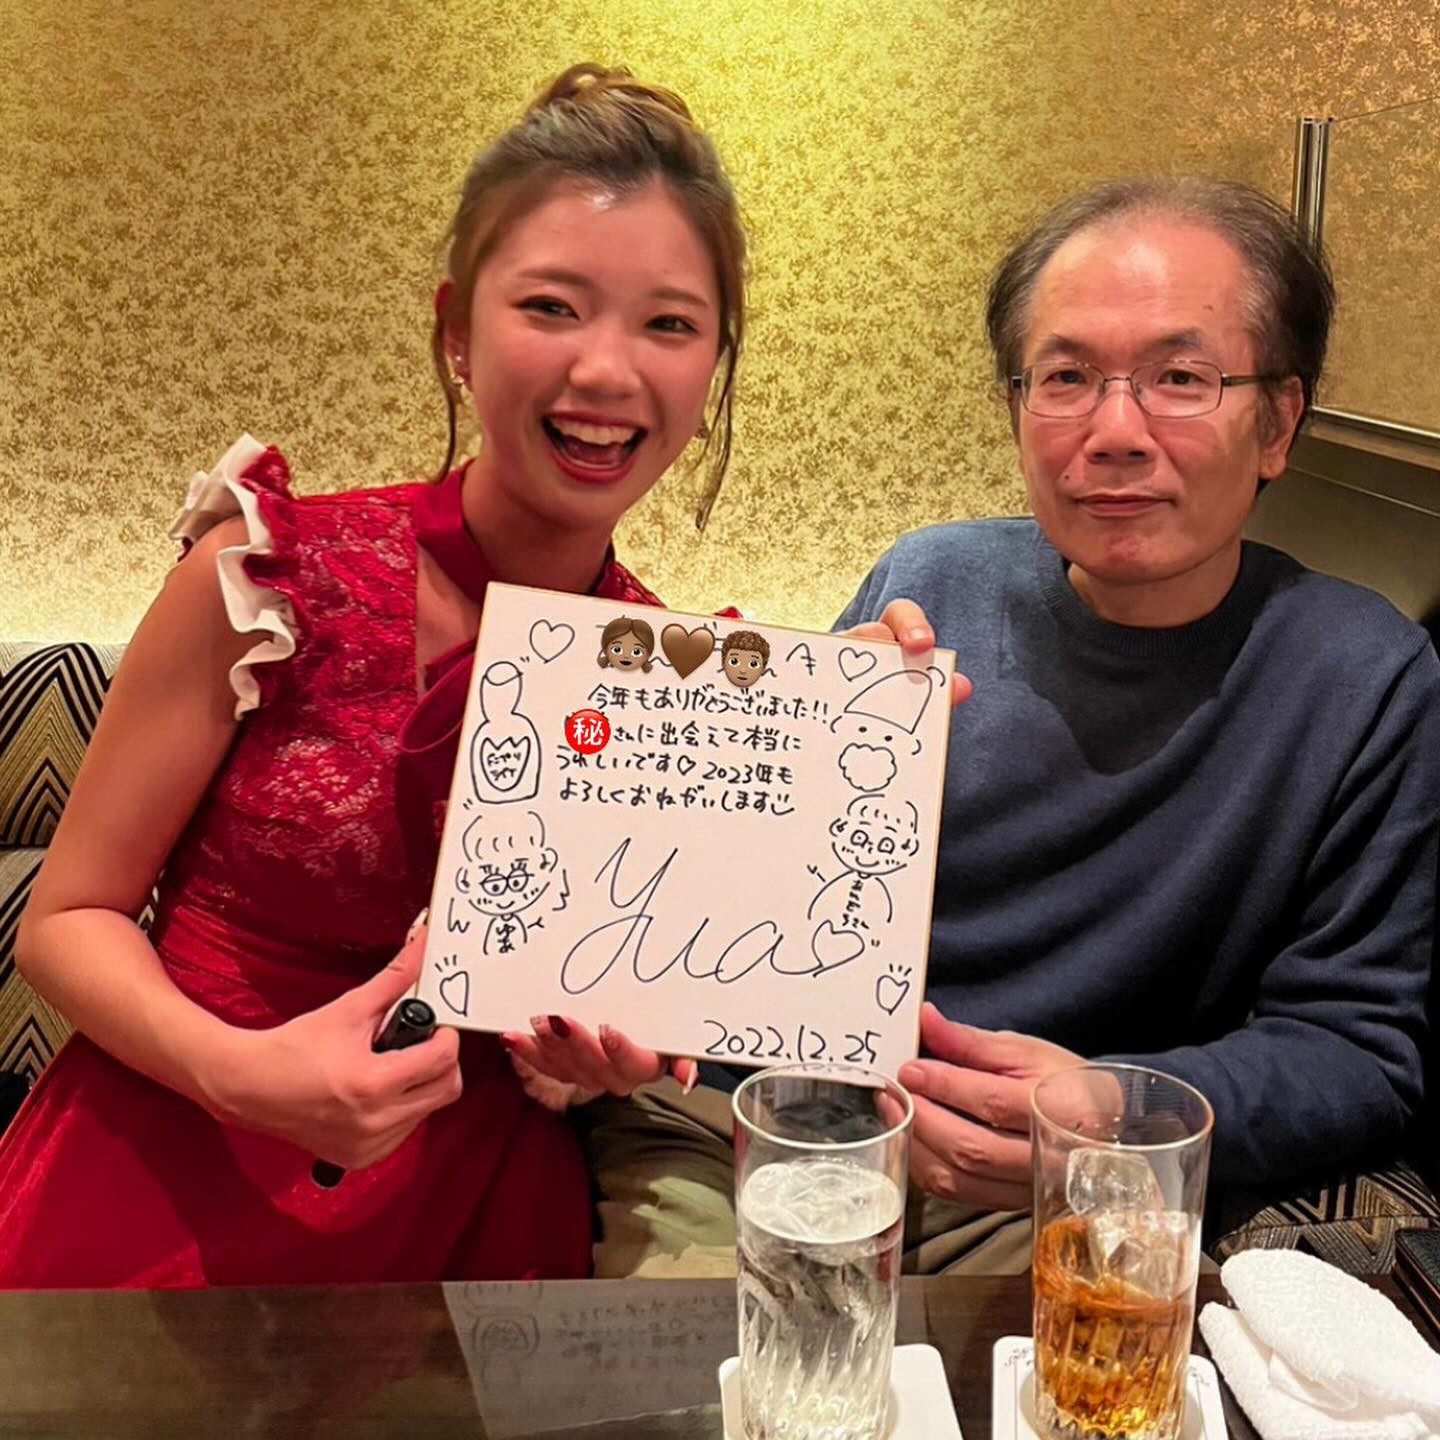 今年もありがとうございました!!
㊙さんに出会えて本当に
うれしいです♡2023年も
よろしくおねがいします
Yua
2022.12.25